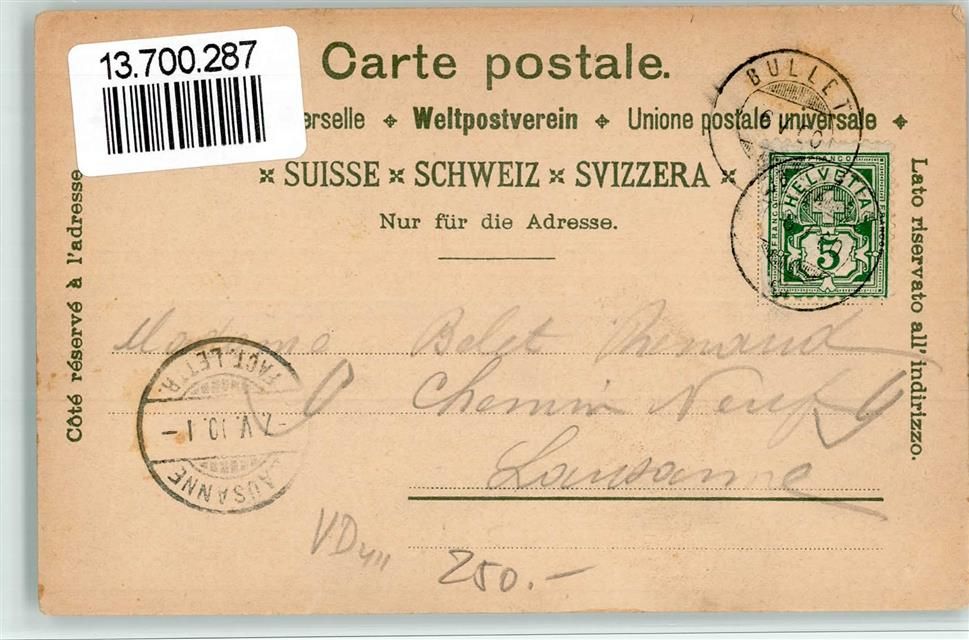 13.700.287
Carte postale.
erselle ✦ Weltpostverein ✦ Unione postale universale ✦
SUISSE SCHWEIZ SVIZZERA
Nur für die Adresse.
Côté réservé à l'adresse
Lato riservato all'indirizzo.
BULLET
FRANCO
HELVETIA
FRANCO
FRANCO
5
Madame Belet Renaud
Chemin Neuf
Lausanne
FACT. LETTR.
-7.V.10. 1-
LAUSANNE
VD
250.-